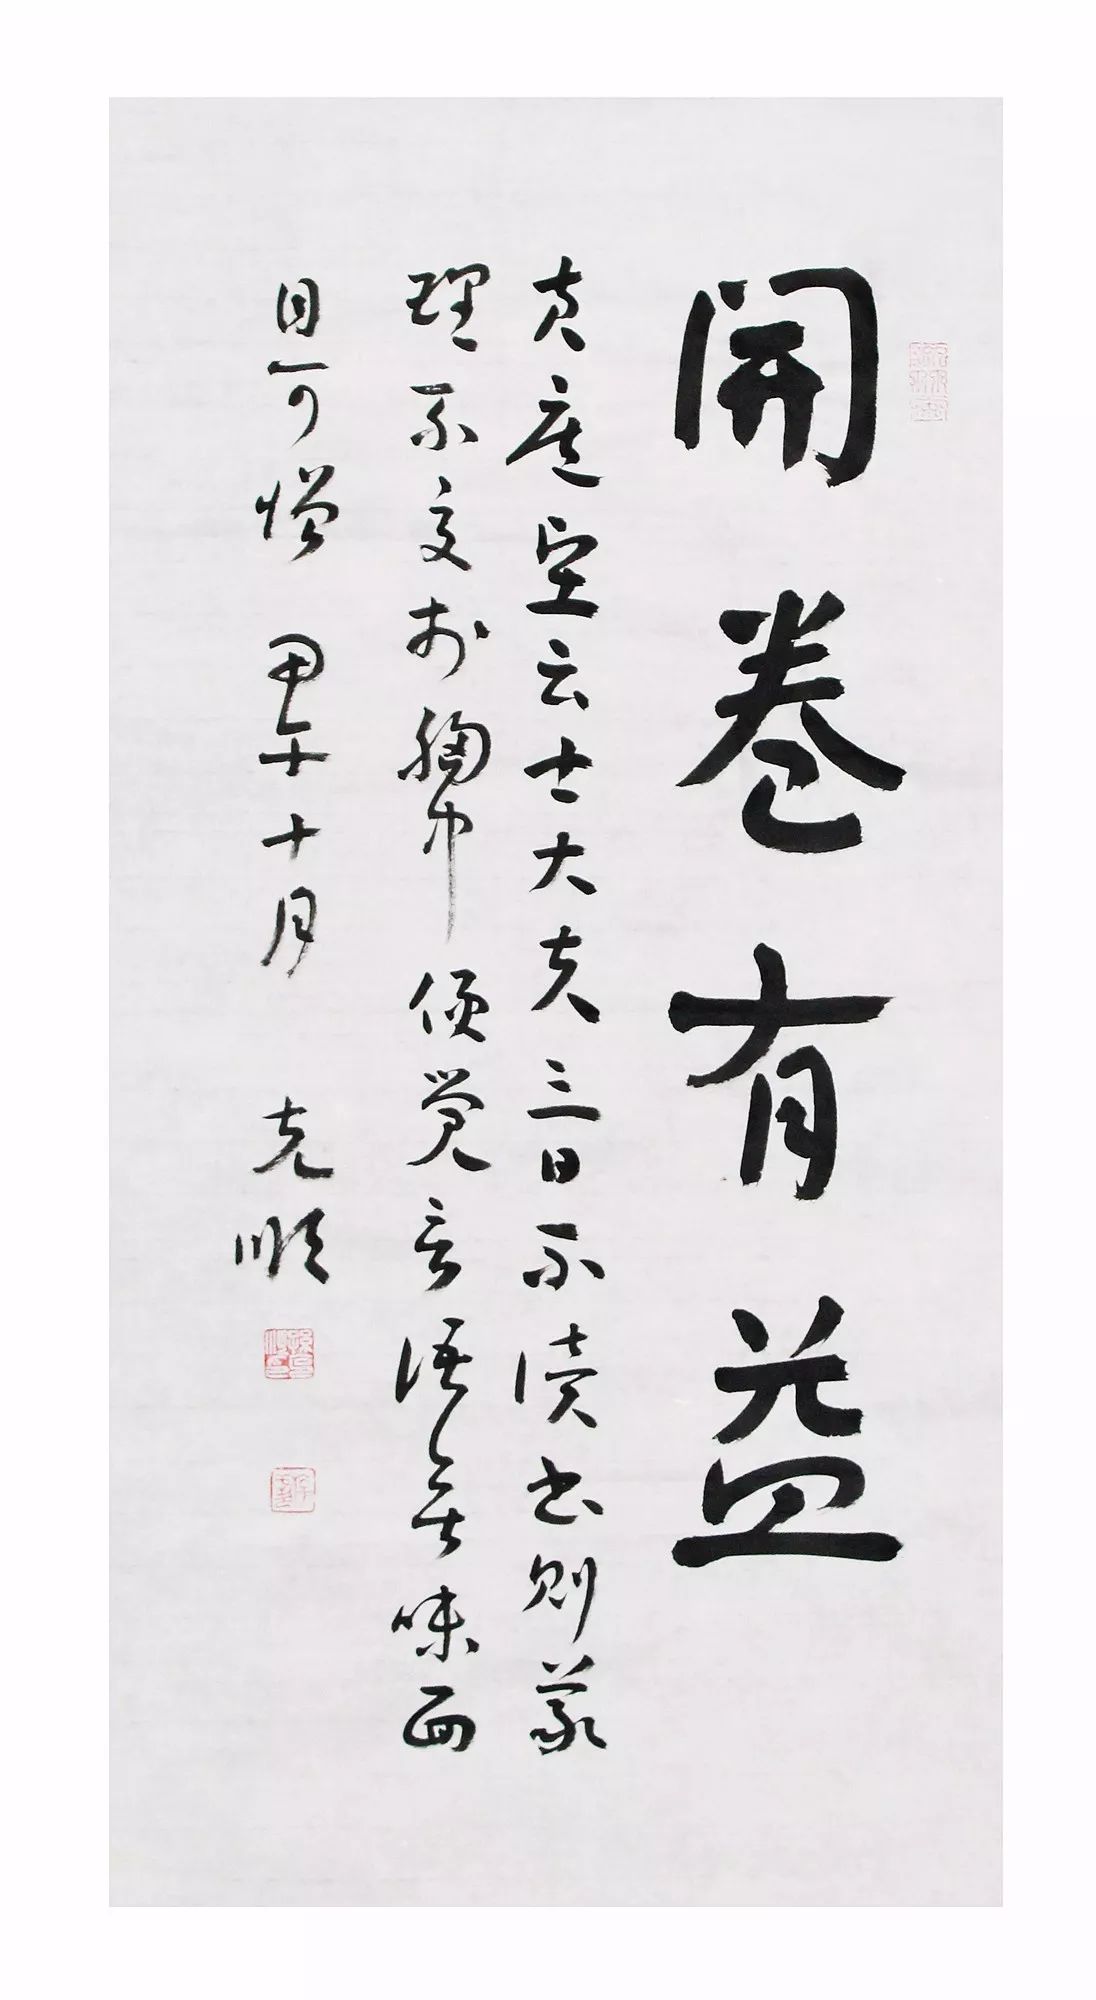 開卷有益
黄庭堅云士大夫三日不讀書則義
理不交於胸中便覺言語無味面
目可憎 甲午十月 克順